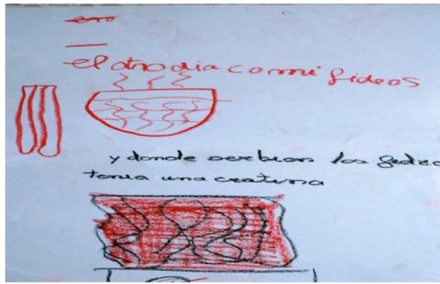 ero
el otro dia comi fideos
y donde serbian los fideo
tenia una creatura